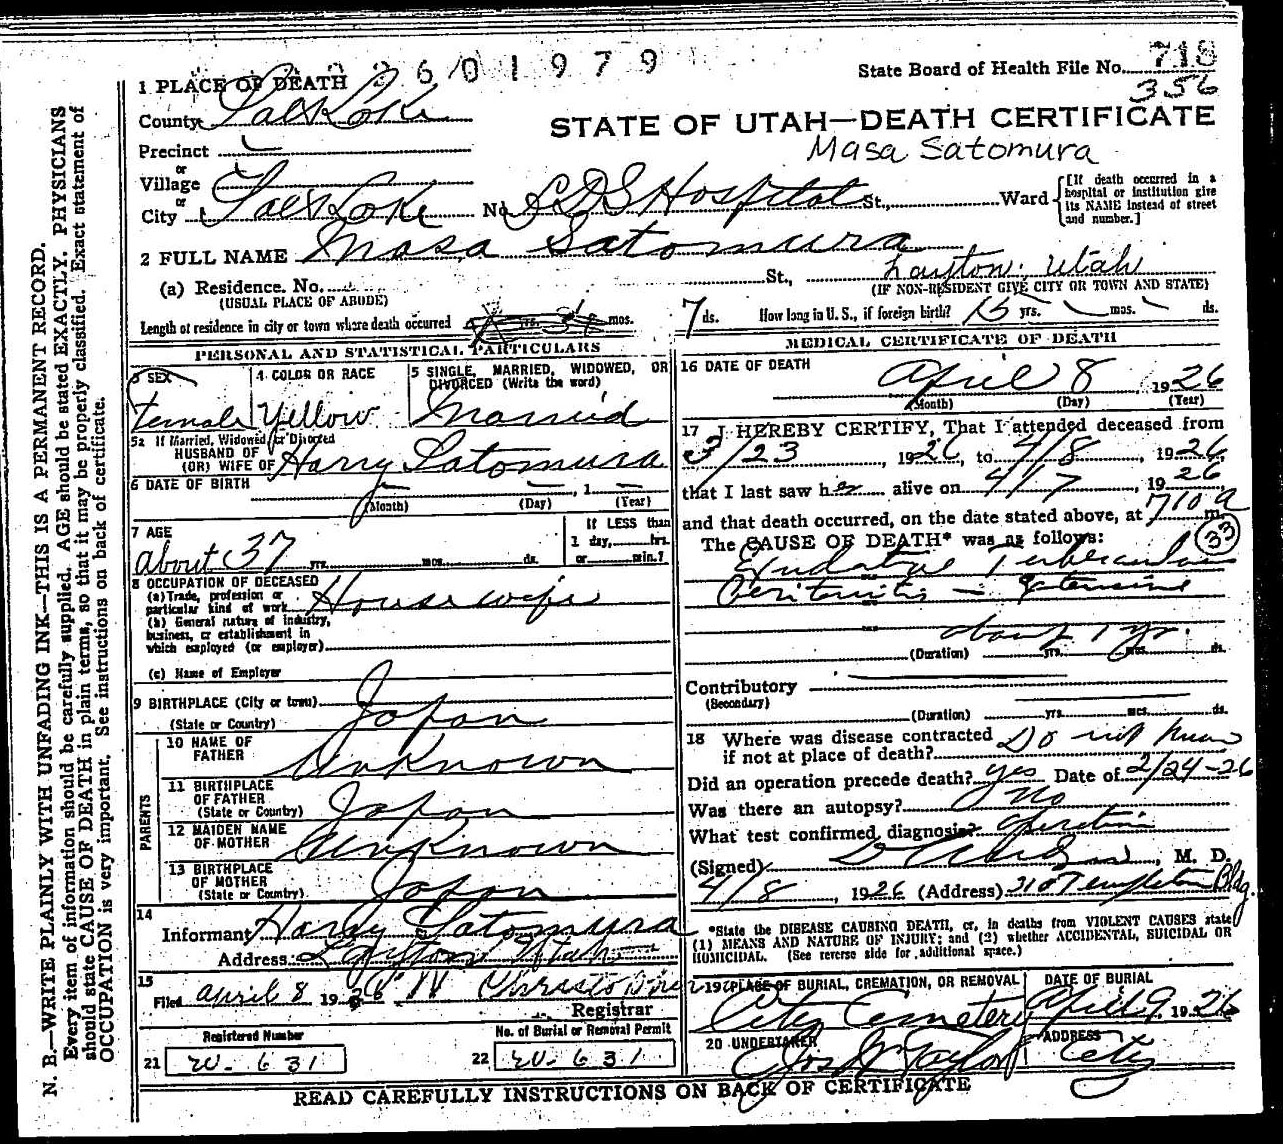 2601979
State Board of Health File No. 718
356
1 PLACE OF DEATH
County Salt Lake
STATE OF UTAH—DEATH CERTIFICATE
Masa Satomura
Precinct
or
Village
or
City Salt Lake No. LDS Hospital St., Ward
[If death occurred in a hospital or institution give its NAME instead of street and number.]
2 FULL NAME Masa Satomura
(a) Residence. No. St., Layton, Utah
(USUAL PLACE OF ABODE) (IF NON-RESIDENT GIVE CITY OR TOWN AND STATE)
Length of residence in city or town where death occurred yrs. mos. 7 ds. How long in U. S., if foreign birth? 15 yrs. mos. ds.
PERSONAL AND STATISTICAL PARTICULARS
3 SEX Female
4 COLOR OR RACE Yellow
5 SINGLE, MARRIED, WIDOWED, OR DIVORCED (Write the word) Married
5a If Married, Widowed, or Divorced
HUSBAND OF
(OR) WIFE OF Harry Satomura
6 DATE OF BIRTH , 1
(Month) (Day) (Year)
7 AGE
About 37 yrs. mos. ds.
If LESS than
1 day, hrs.
or min.?
8 OCCUPATION OF DECEASED
(a) Trade, profession or
particular kind of work Housewife
(b) General nature of industry,
business, or establishment in
which employed (or employer)
(c) Name of Employer
9 BIRTHPLACE (City or town)
(State or Country) Japan
PARENTS
10 NAME OF
FATHER Unknown
11 BIRTHPLACE
OF FATHER
(State or Country) Japan
12 MAIDEN NAME
OF MOTHER Unknown
13 BIRTHPLACE
OF MOTHER
(State or Country) Japan
14
Informant Harry Satomura
Address: Layton Utah
15
Filed April 8 1926
Registrar
Registered Number
21 W-631
No. of Burial or Removal Permit
22 W-631
MEDICAL CERTIFICATE OF DEATH
16 DATE OF DEATH
April 8, 1926
(Month) (Day) (Year)
17 I HEREBY CERTIFY, That I attended deceased from
3/23, 1926, to 4/8, 1926,
that I last saw her alive on 4/7, 1926
and that death occurred, on the date stated above, at 710 a m.
The CAUSE OF DEATH* was as follows: 33
Exudative Tuberculous
Peritonitis - Extensive
about 1 yr.
(Duration) yrs. mos. ds.
Contributory
(Secondary)
(Duration) yrs. mos. ds.
18 Where was disease contracted
if not at place of death? Do not know
Did an operation precede death? Yes Date of 2/24-26
Was there an autopsy? No
What test confirmed diagnosis? Operation
(Signed) , M. D.
4/8, 1926 (Address) 310 Templeton Bldg.
*State the DISEASE CAUSING DEATH, or, in deaths from VIOLENT CAUSES state
(1) MEANS AND NATURE OF INJURY; and (2) whether ACCIDENTAL, SUICIDAL OR
HOMICIDAL. (See reverse side for additional space.)
19 PLACE OF BURIAL, CREMATION, OR REMOVAL City Cemetery
DATE OF BURIAL April 9, 1926
20 UNDERTAKER Jos Wm Taylor
ADDRESS City
READ CAREFULLY INSTRUCTIONS ON BACK OF CERTIFICATE
N. B.—WRITE PLAINLY WITH UNFADING INK—THIS IS A PERMANENT RECORD.
Every item of information should be carefully supplied. AGE should be stated EXACTLY. PHYSICIANS
should state CAUSE OF DEATH in plain terms, so that it may be properly classified. Exact statement of
OCCUPATION is very important. See instructions on back of certificate.